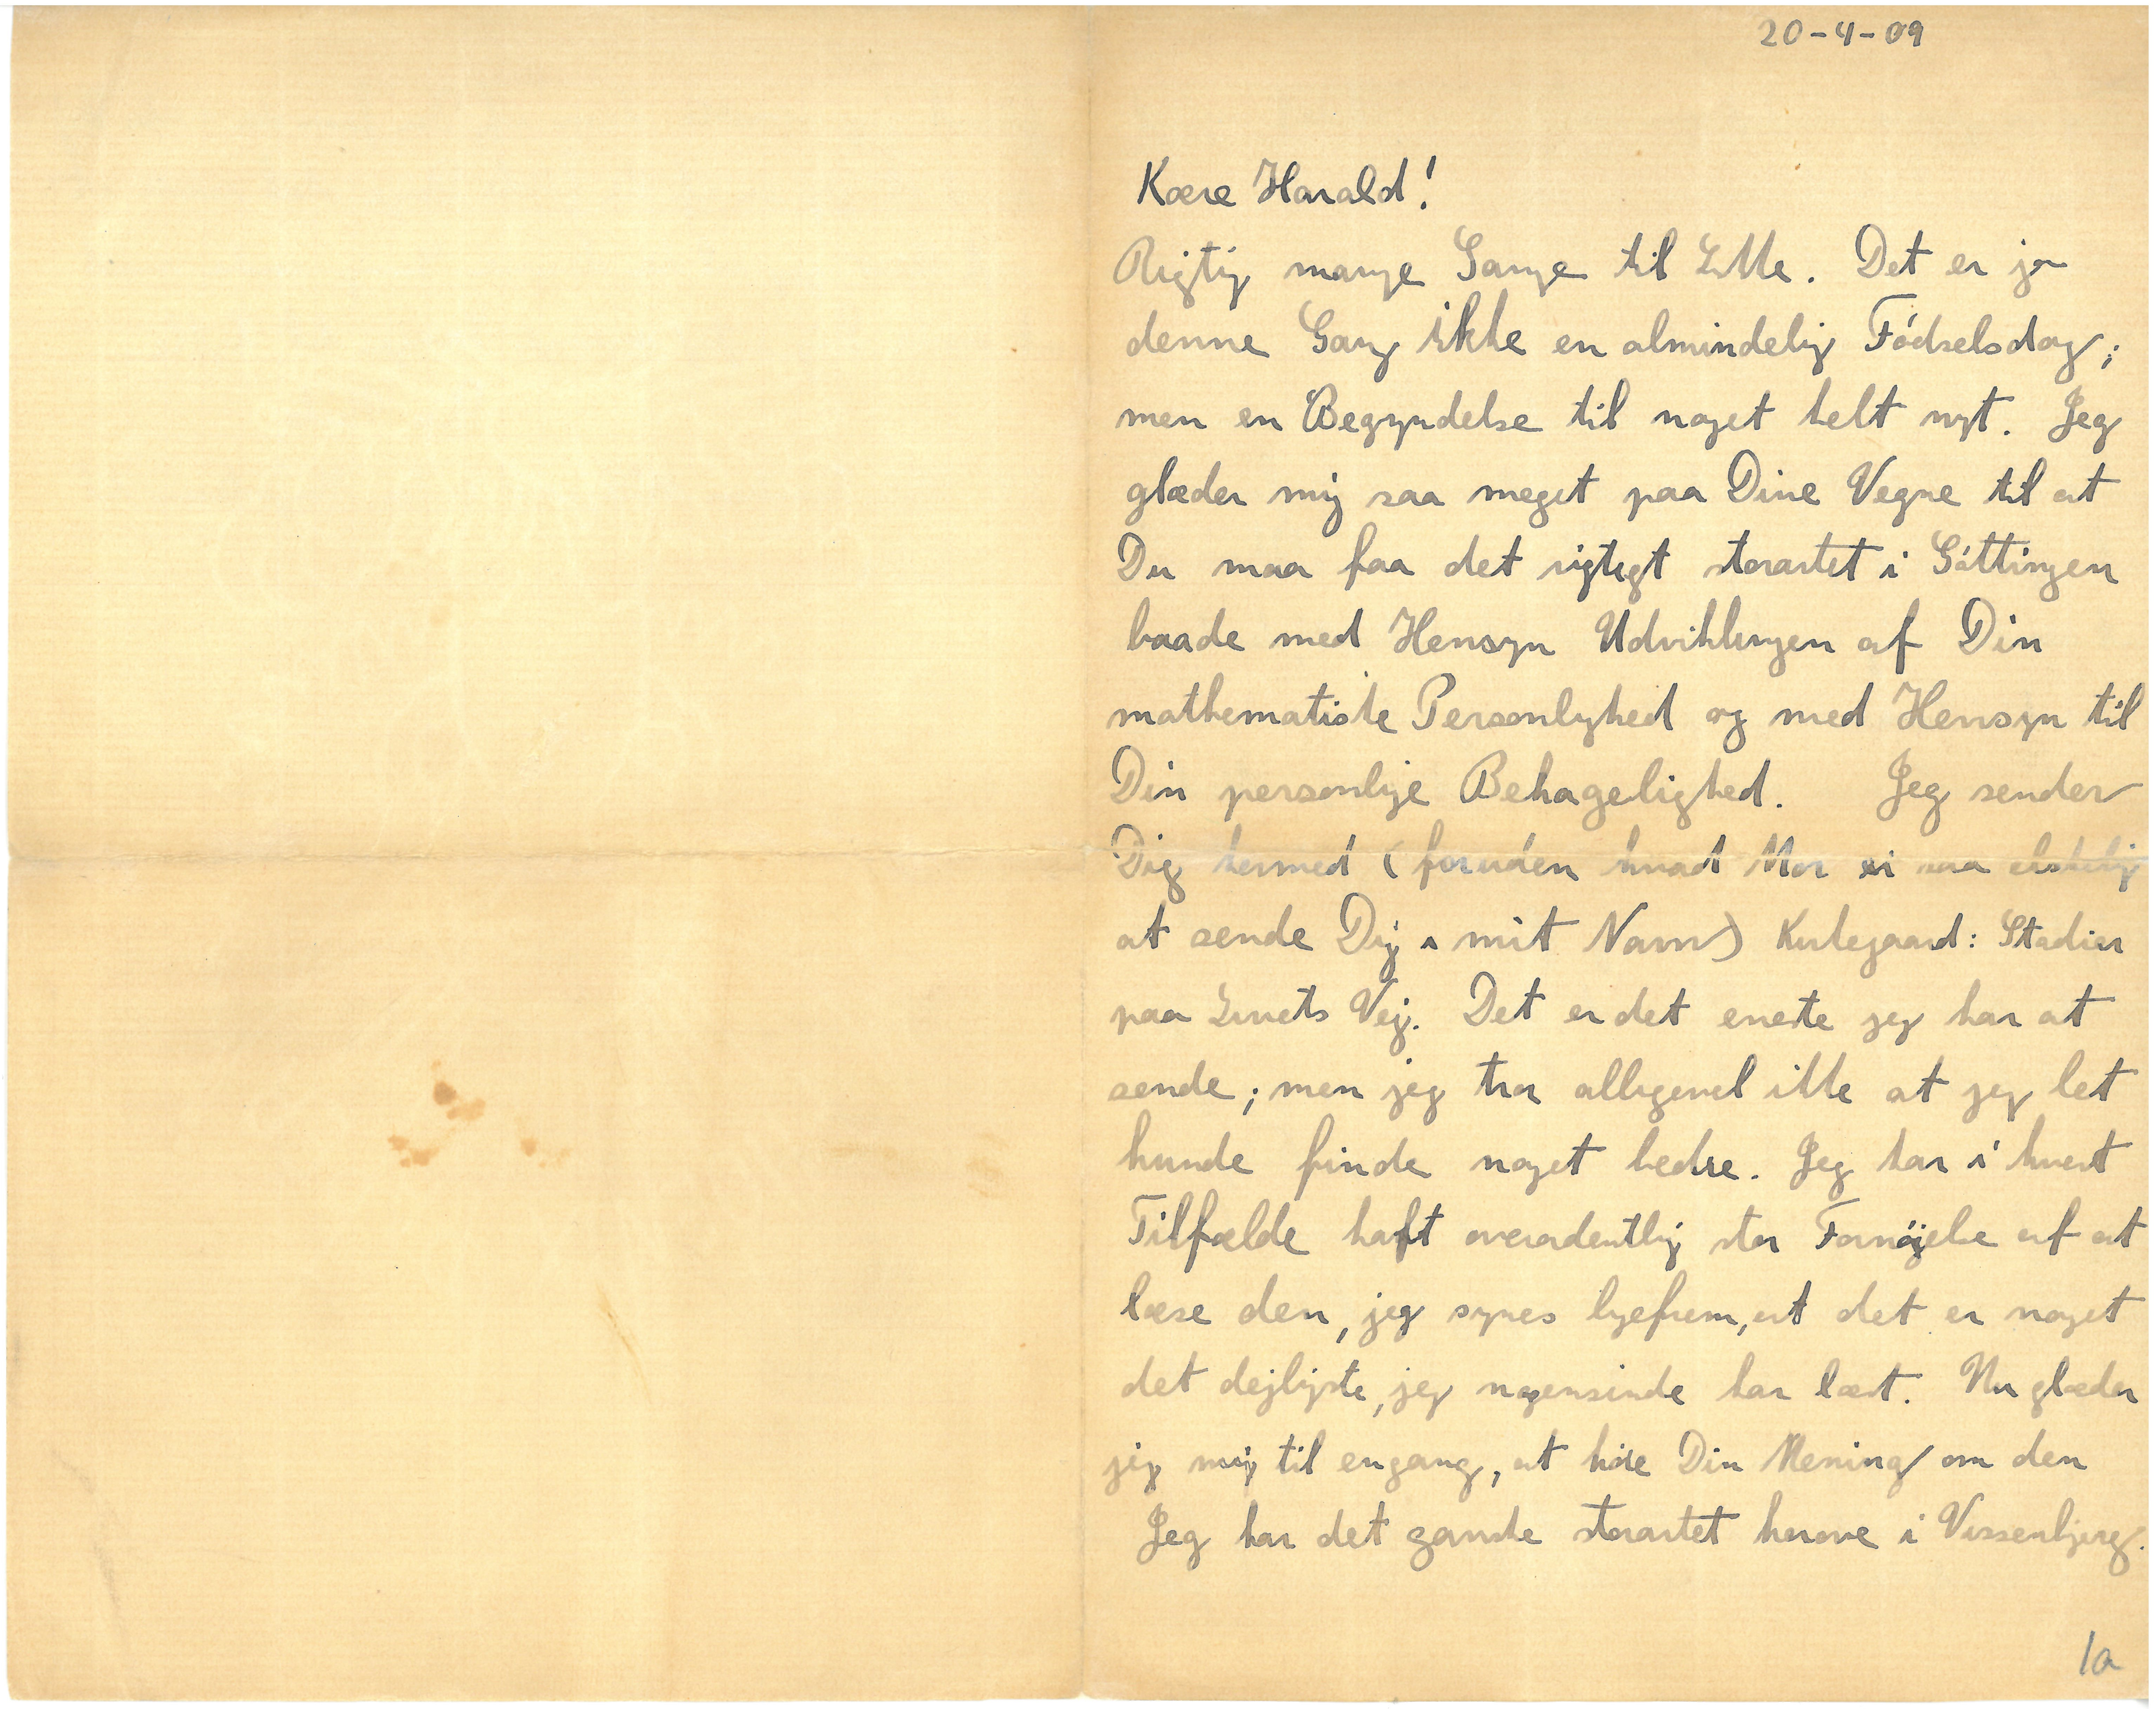 20-4-09
Kære Harald!
Rigtig mange Gange til Likke. Det er ja
denne Gang ikke en almindelig Fødselsdag;
men en Begyndelse til noget helt nyt. Jeg
glæder mig saa meget paa Dine Vegne til at
Du maa faa det rigtigt storartet i Göttingen
baade med Hensyn Udviklingen af Din
mathematiske Personlighed og med Hensyn til
Din personlige Behagelighed. Jeg sender
Dig hermed (foruden hvad Mor er saa elskelig
at sende Dig i mit Navn) Kirkegaard: Stadier
paa Livets Vej. Det er det eneste jeg har at
sende; men jeg tror alligevel ikke at jeg let
kunde finde noget bedre. Jeg har i hvert
Tilfælde haft overordentlig stor Fornøjelse af at
læse den, jeg synes ligefrem, at det er noget
det dejligste, jeg nogensinde har læst. Nu glæder
jeg mig til engang, at høre Din Mening om den
Jeg har det ganske storartet herovre i Vissenbjerg.
1a